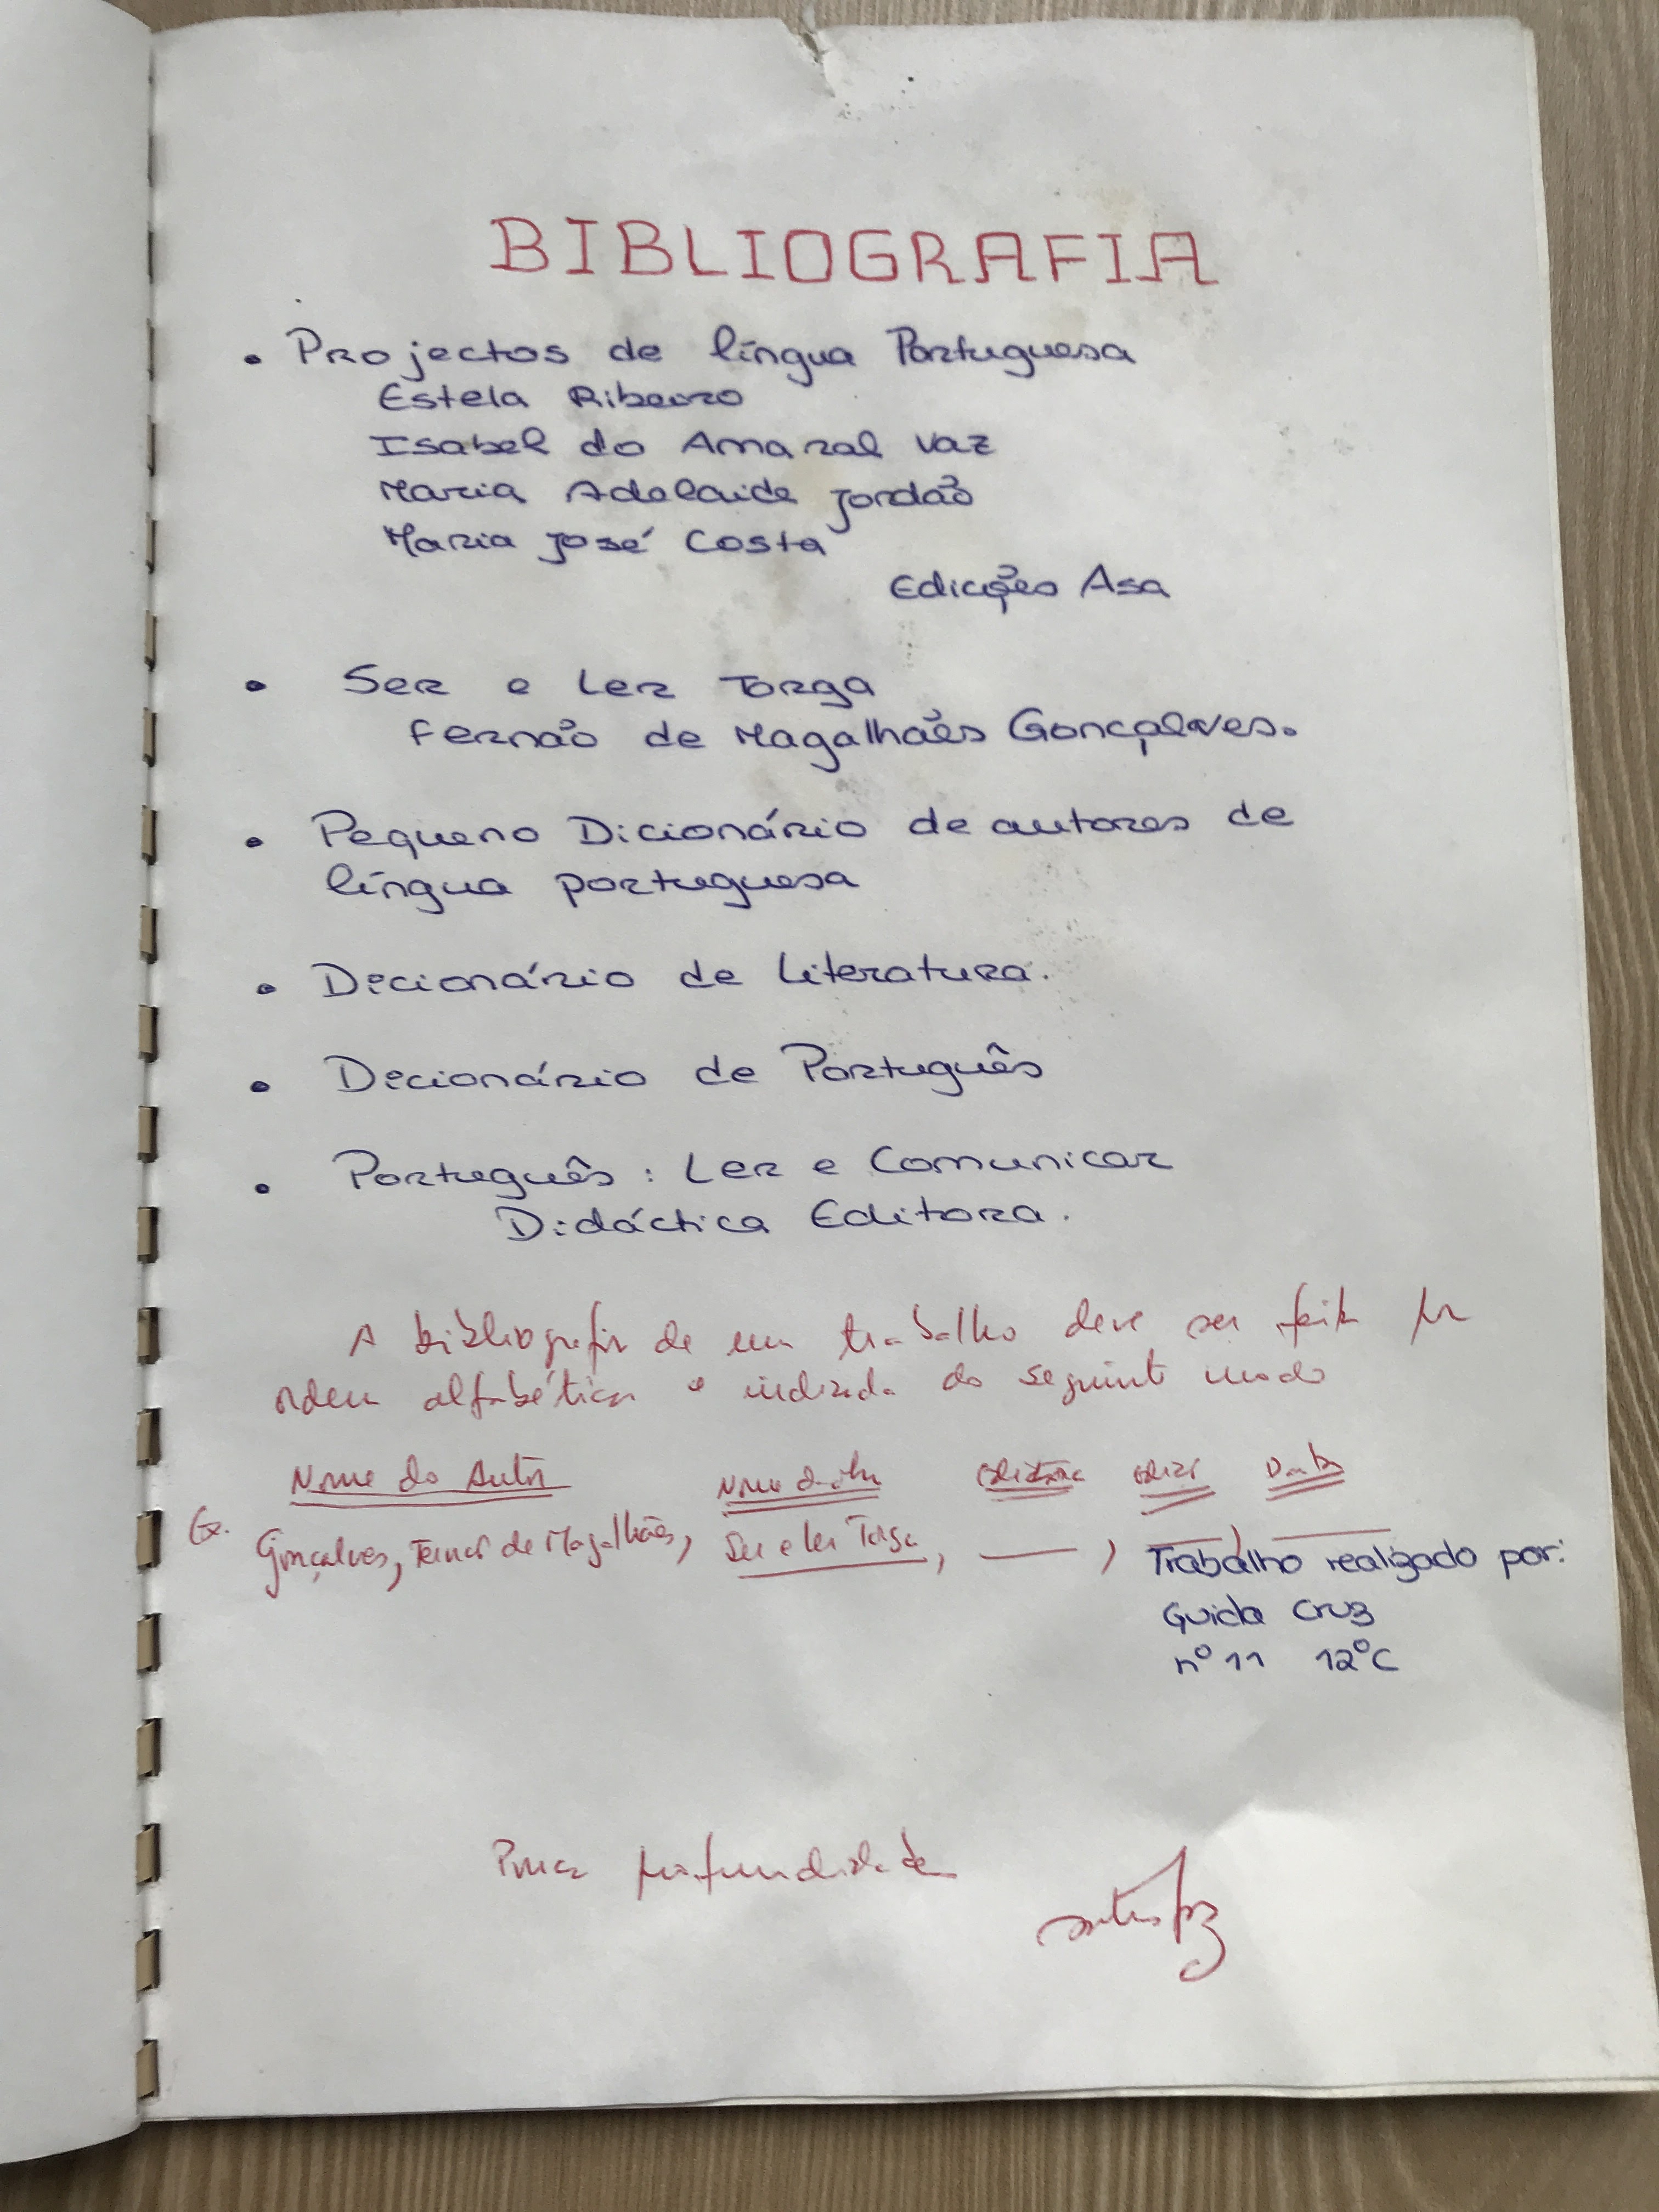 BIBLIOGRAFIA
• Projectos de língua Portuguesa
Estela Ribeiro
Isabel do Amaral Vaz
Maria Adelaide Jordão
Maria José Costa
Edições Asa
• Ser e Ler Torga
Fernão de Magalhães Gonçalves.
• Pequeno Dicionário de autores de
língua portuguesa
• Dicionário de Literatura.
• Dicionário de Português
• Português : Ler e Comunicar
Didáctica Editora.
A bibliografia de um trabalho deve ser feita por
ordem alfabética e indicada do seguinte modo
Nome do Autor Nome da obra editora edição Data
Ex. Gonçalves, Fernão de Magalhães, Ser e ler Torga, — ,
Trabalho realizado por:
Guida Cruz
nº 11 12ºC
Pouca profundidade